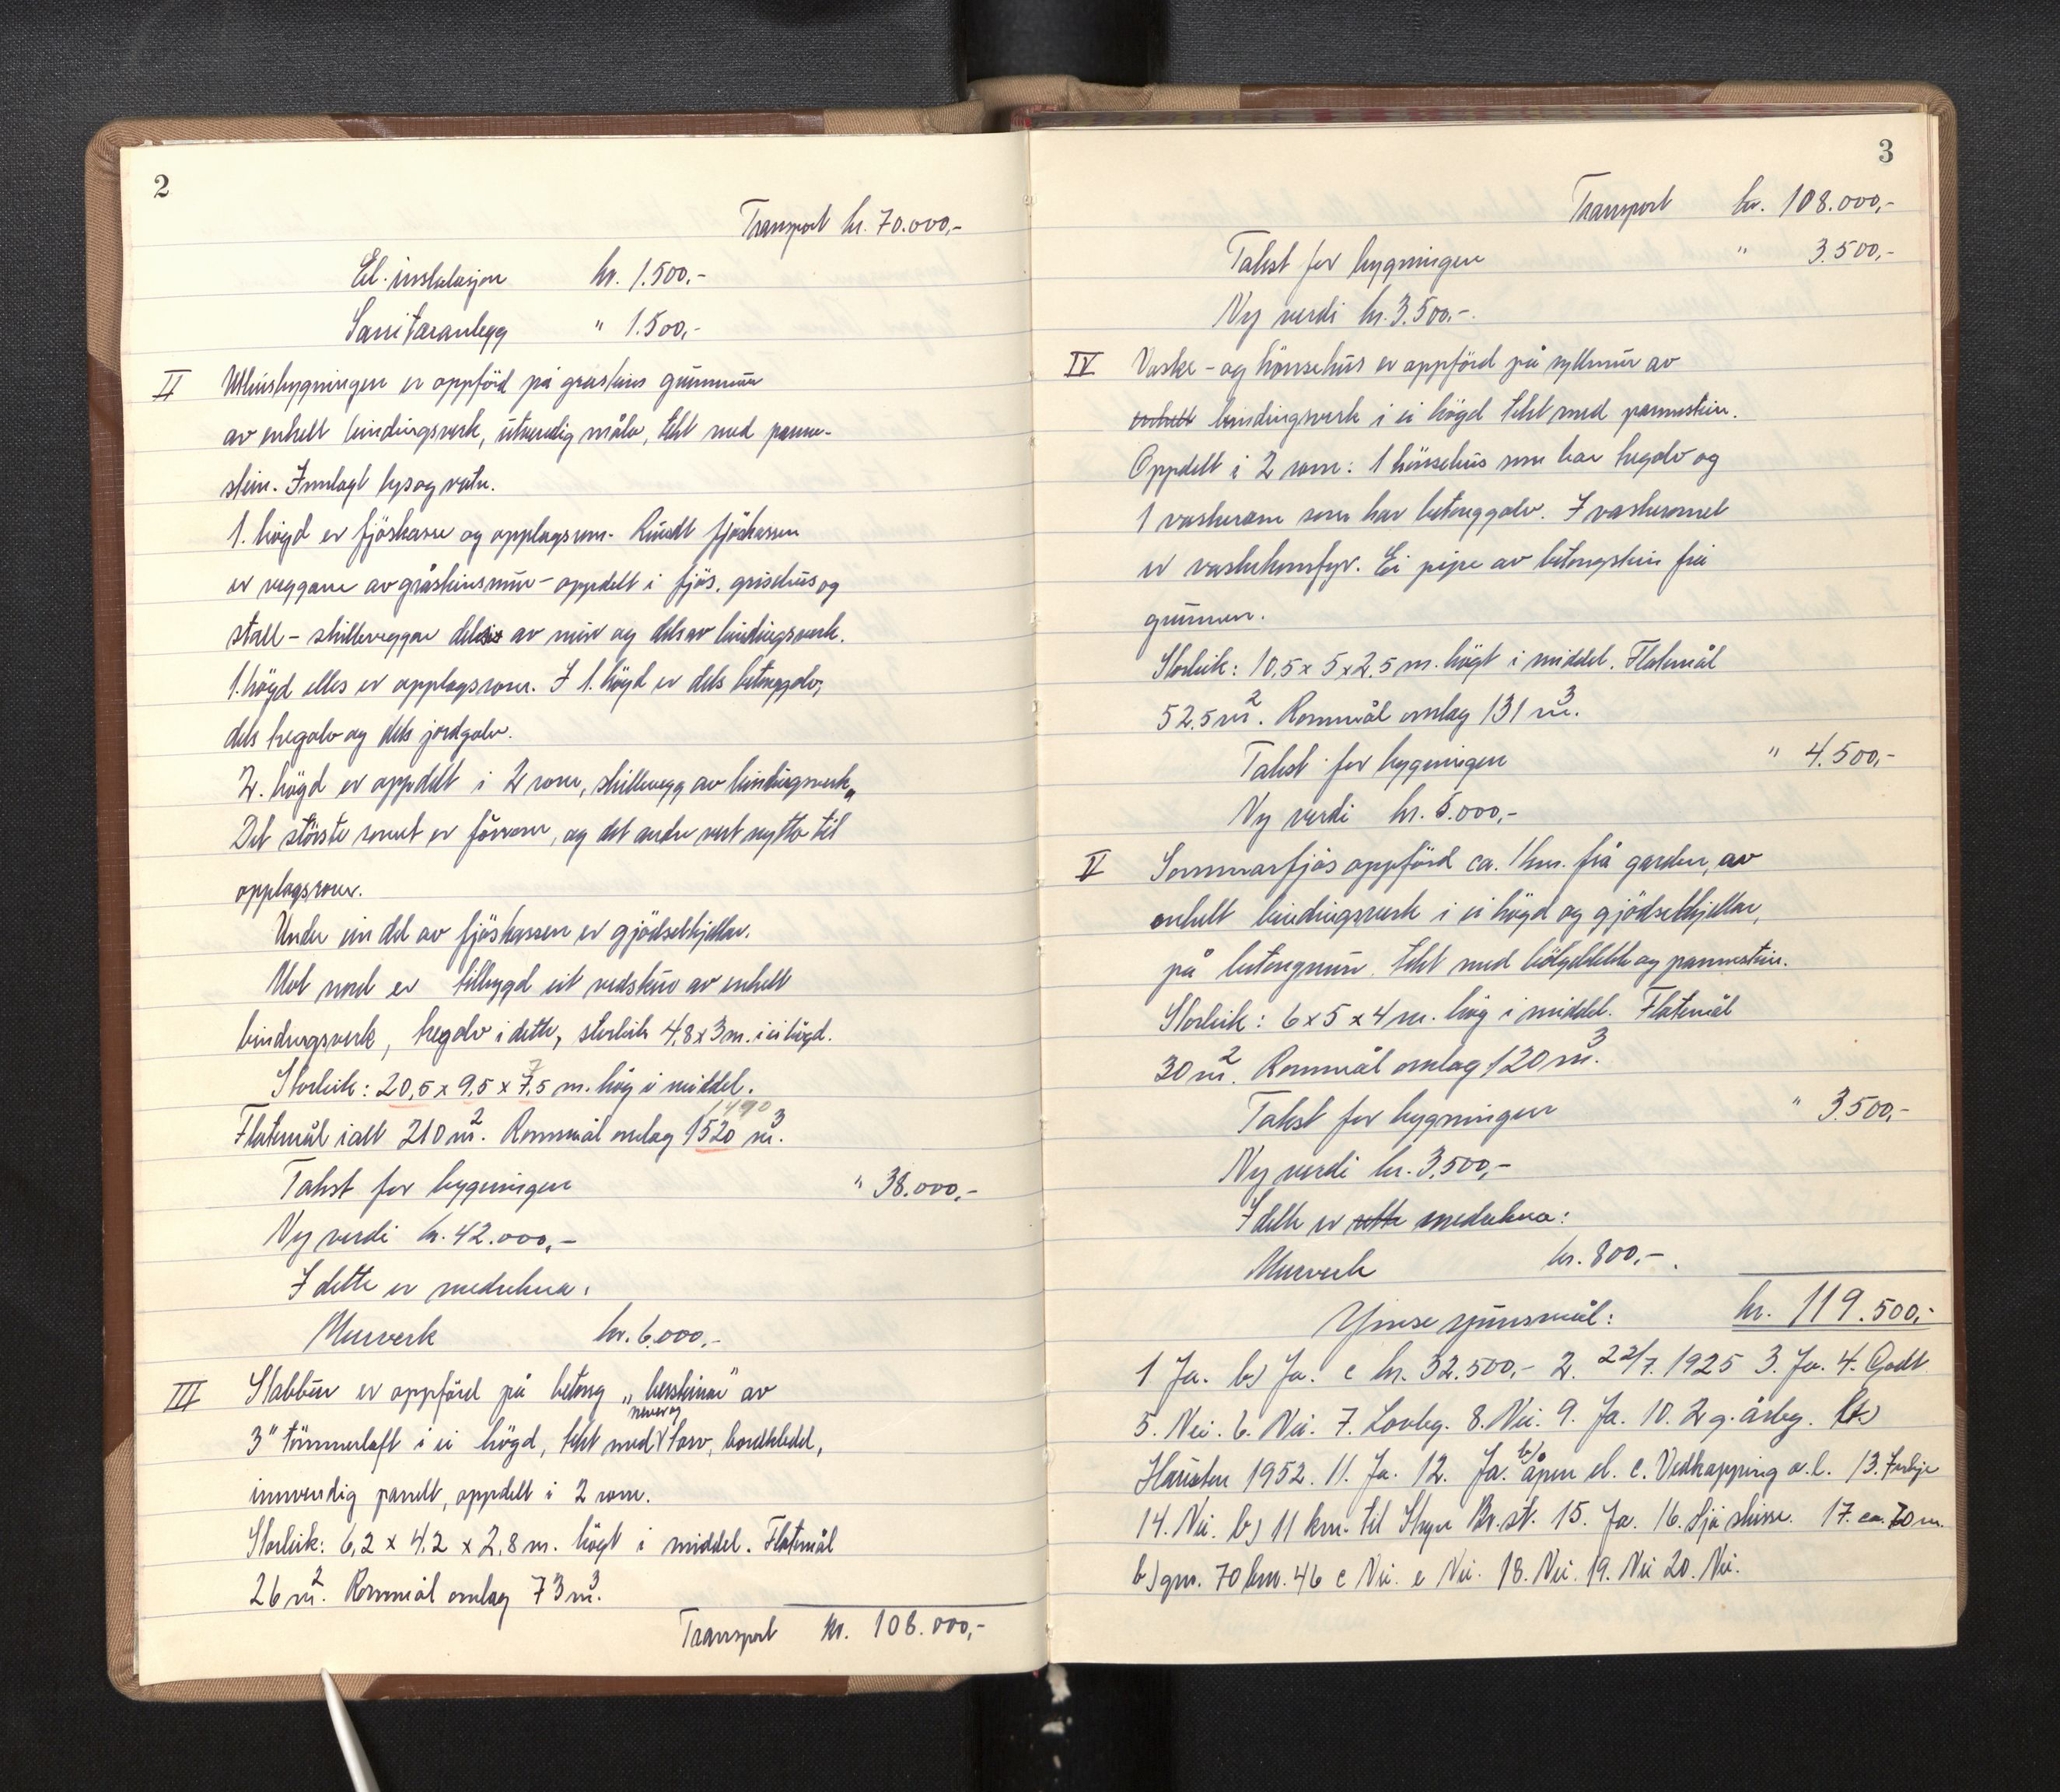 2
Transport kr. 70.000,-
El. instalasjon kr. 1.500,-
Sanitæranlegg " 1.500,-
II Uthusbygningen er oppförd på gråsteins grunnmur
av enkelt bindingsverk, utvendig måla, tekt med panne-
stein. Innlagt lys og vatn.
1. högd er fjöskasse og opplagsrom. Rundt fjöskassen
er veggane av gråsteinsmur - oppdelt i fjös, grisehus og
stall - skilleveggar dels av mur og dels av bindingsverk.
1. högd elles er opplagsrom. I 1. högd er dels betonggolv,
dels tregolv og dels jordgolv.
2. högd er oppdelt i 2 rom, skillevegg av bindingsverk.
Det störste romet er fôrrom, og det andre vert nytta til
opplagsrom.
Under ein del av fjöskassen er gjödselkjellar.
Mot nord er tilbygd eit vedskur av enkelt
bindingsverk, tregolv i dette, storleik 4,8 x 3 m. i ei högd.
7
Storleik: 20,5 x 9,5 x 7,5 m. hög i middel.
1490
Flatemål ialt 210 m². Rommål omlag 1520 m³.
Takst for bygningen " 38.000,-
Ny verdi kr. 42.000,-
I dette er medrekna:
Murverk kr. 6.000,-
III Stabbur er oppförd på betong av
never og
3" tömmerlaft i ei högd, tekt med torv, bordkledd,
innvendig panelt, oppdelt i 2 rom.
Storleik: 6,2 x 4,2 x 2,8 m. högt i middel. Flatemål
26 m². Rommål omlag 73 m³.
Transport kr. 108.000,-
3
Transport kr. 108.000,-
Takst for bygningen " 3.500,-
Ny verdi kr. 3.500,-.
IV Vaske- og hönsehus er oppförd på syllmur av
enkelt bindingsverk i ei högd tekt med pannestein.
Oppdelt i 2 rom: 1 hönsehus som har tregolv og
1 vaskerom som har betonggolv. I vaskeromet
er vaskekomfyr. Ei pipe av betongstein frå
grunnen.
Storleik: 10,5 x 5 x 2,5 m. högt i middel. Flatemål
52,5 m². Rommål omlag 131 m³.
Takst for bygningen " 4.500,-
Ny verdi kr. 5.000,-
V Sommarfjös oppförd ca. 1 km. frå garden, av
enkelt bindingsverk i ei högd og gjödselkjellar,
på betongmur, tekt med bölgeblekk og pannestein.
Storleik: 6 x 5 x 4 m. hög i middel. Flatemål
30 m². Rommål omlag 120 m³.
Takst for bygningen " 3.500,-
Ny verdi kr. 3.500,-
I dette er medrekna:
Murverk kr. 800,-.
Ymse spursmål: kr. 119.500,-
1 Ja. b) Ja. c kr. 32.500,- 2. 22/7. 1925 3. Ja. 4. Godt
5. Nei. 6. Nei. 7. Lovleg. 8. Nei. 9. Ja. 10. 2 g. årleg. b)
b)
Hausten 1952. 11. Ja. 12. Ja. åpen el. c. Vedkapping o.l. 13. Tilje
14. Nei. b) 11 km. til Stryn Br.st. 15. Ja. 16. Sjå skisse. 17. ca. 70 m.
b) gnr. 70 bnr. 46 c Nei. e Nei. 18. Nei. 19. Nei 20. Nei.